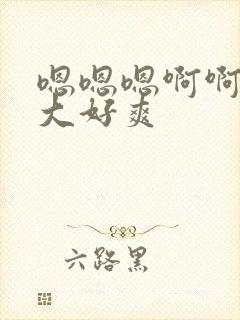 嗯嗯嗯啊啊
大好爽
六路黑